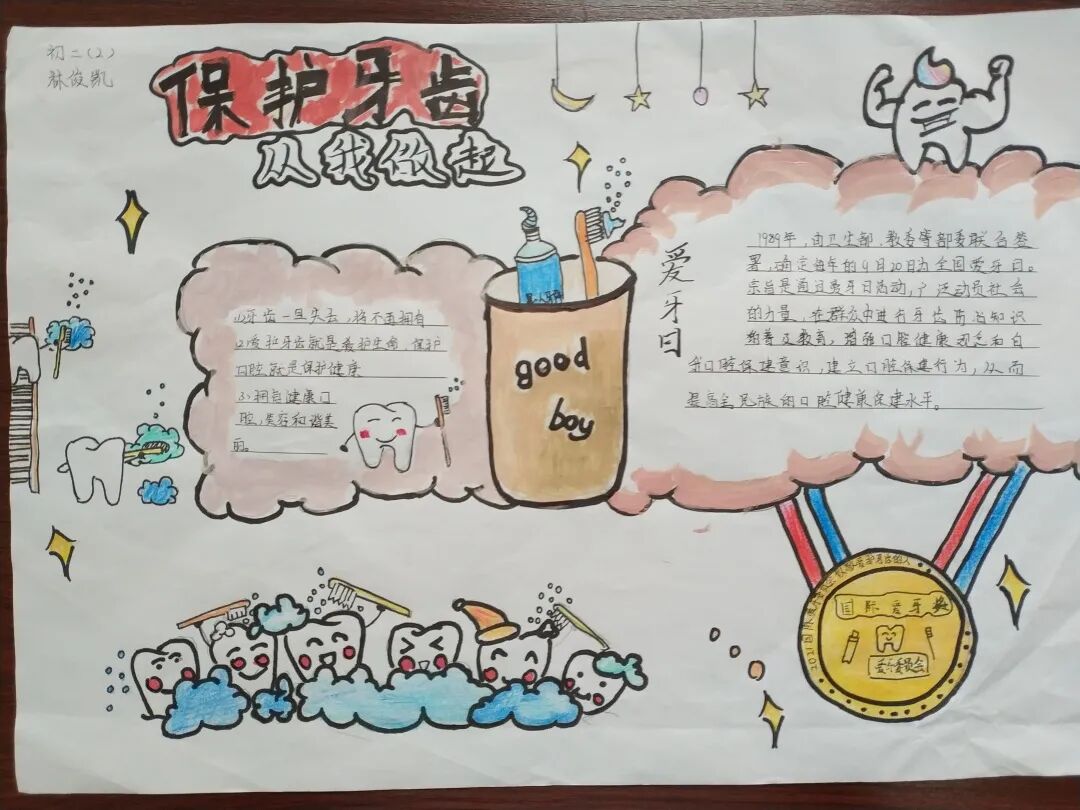 初二(2)
林俊凯
保护牙齿
从我做起
(1)牙齿一旦失去，将不再拥有
(2)爱护牙齿就是爱护生命，保护
口腔就是保护健康
(3)拥有健康口
腔，笑容和谐美
丽。
good
boy
爱牙日
1989年，由卫生部、教委等部委联合签
署，确定每年的9月20日为全国爱牙日。
宗旨是通过爱牙日活动，广泛动员社会
的力量，在群众中进行牙齿防治知识
的普及教育，增强口腔健康观念和自
我口腔保健意识，建立口腔保健行为，从而
提高全民族的口腔健康保健水平。
国际爱牙
爱牙委员会